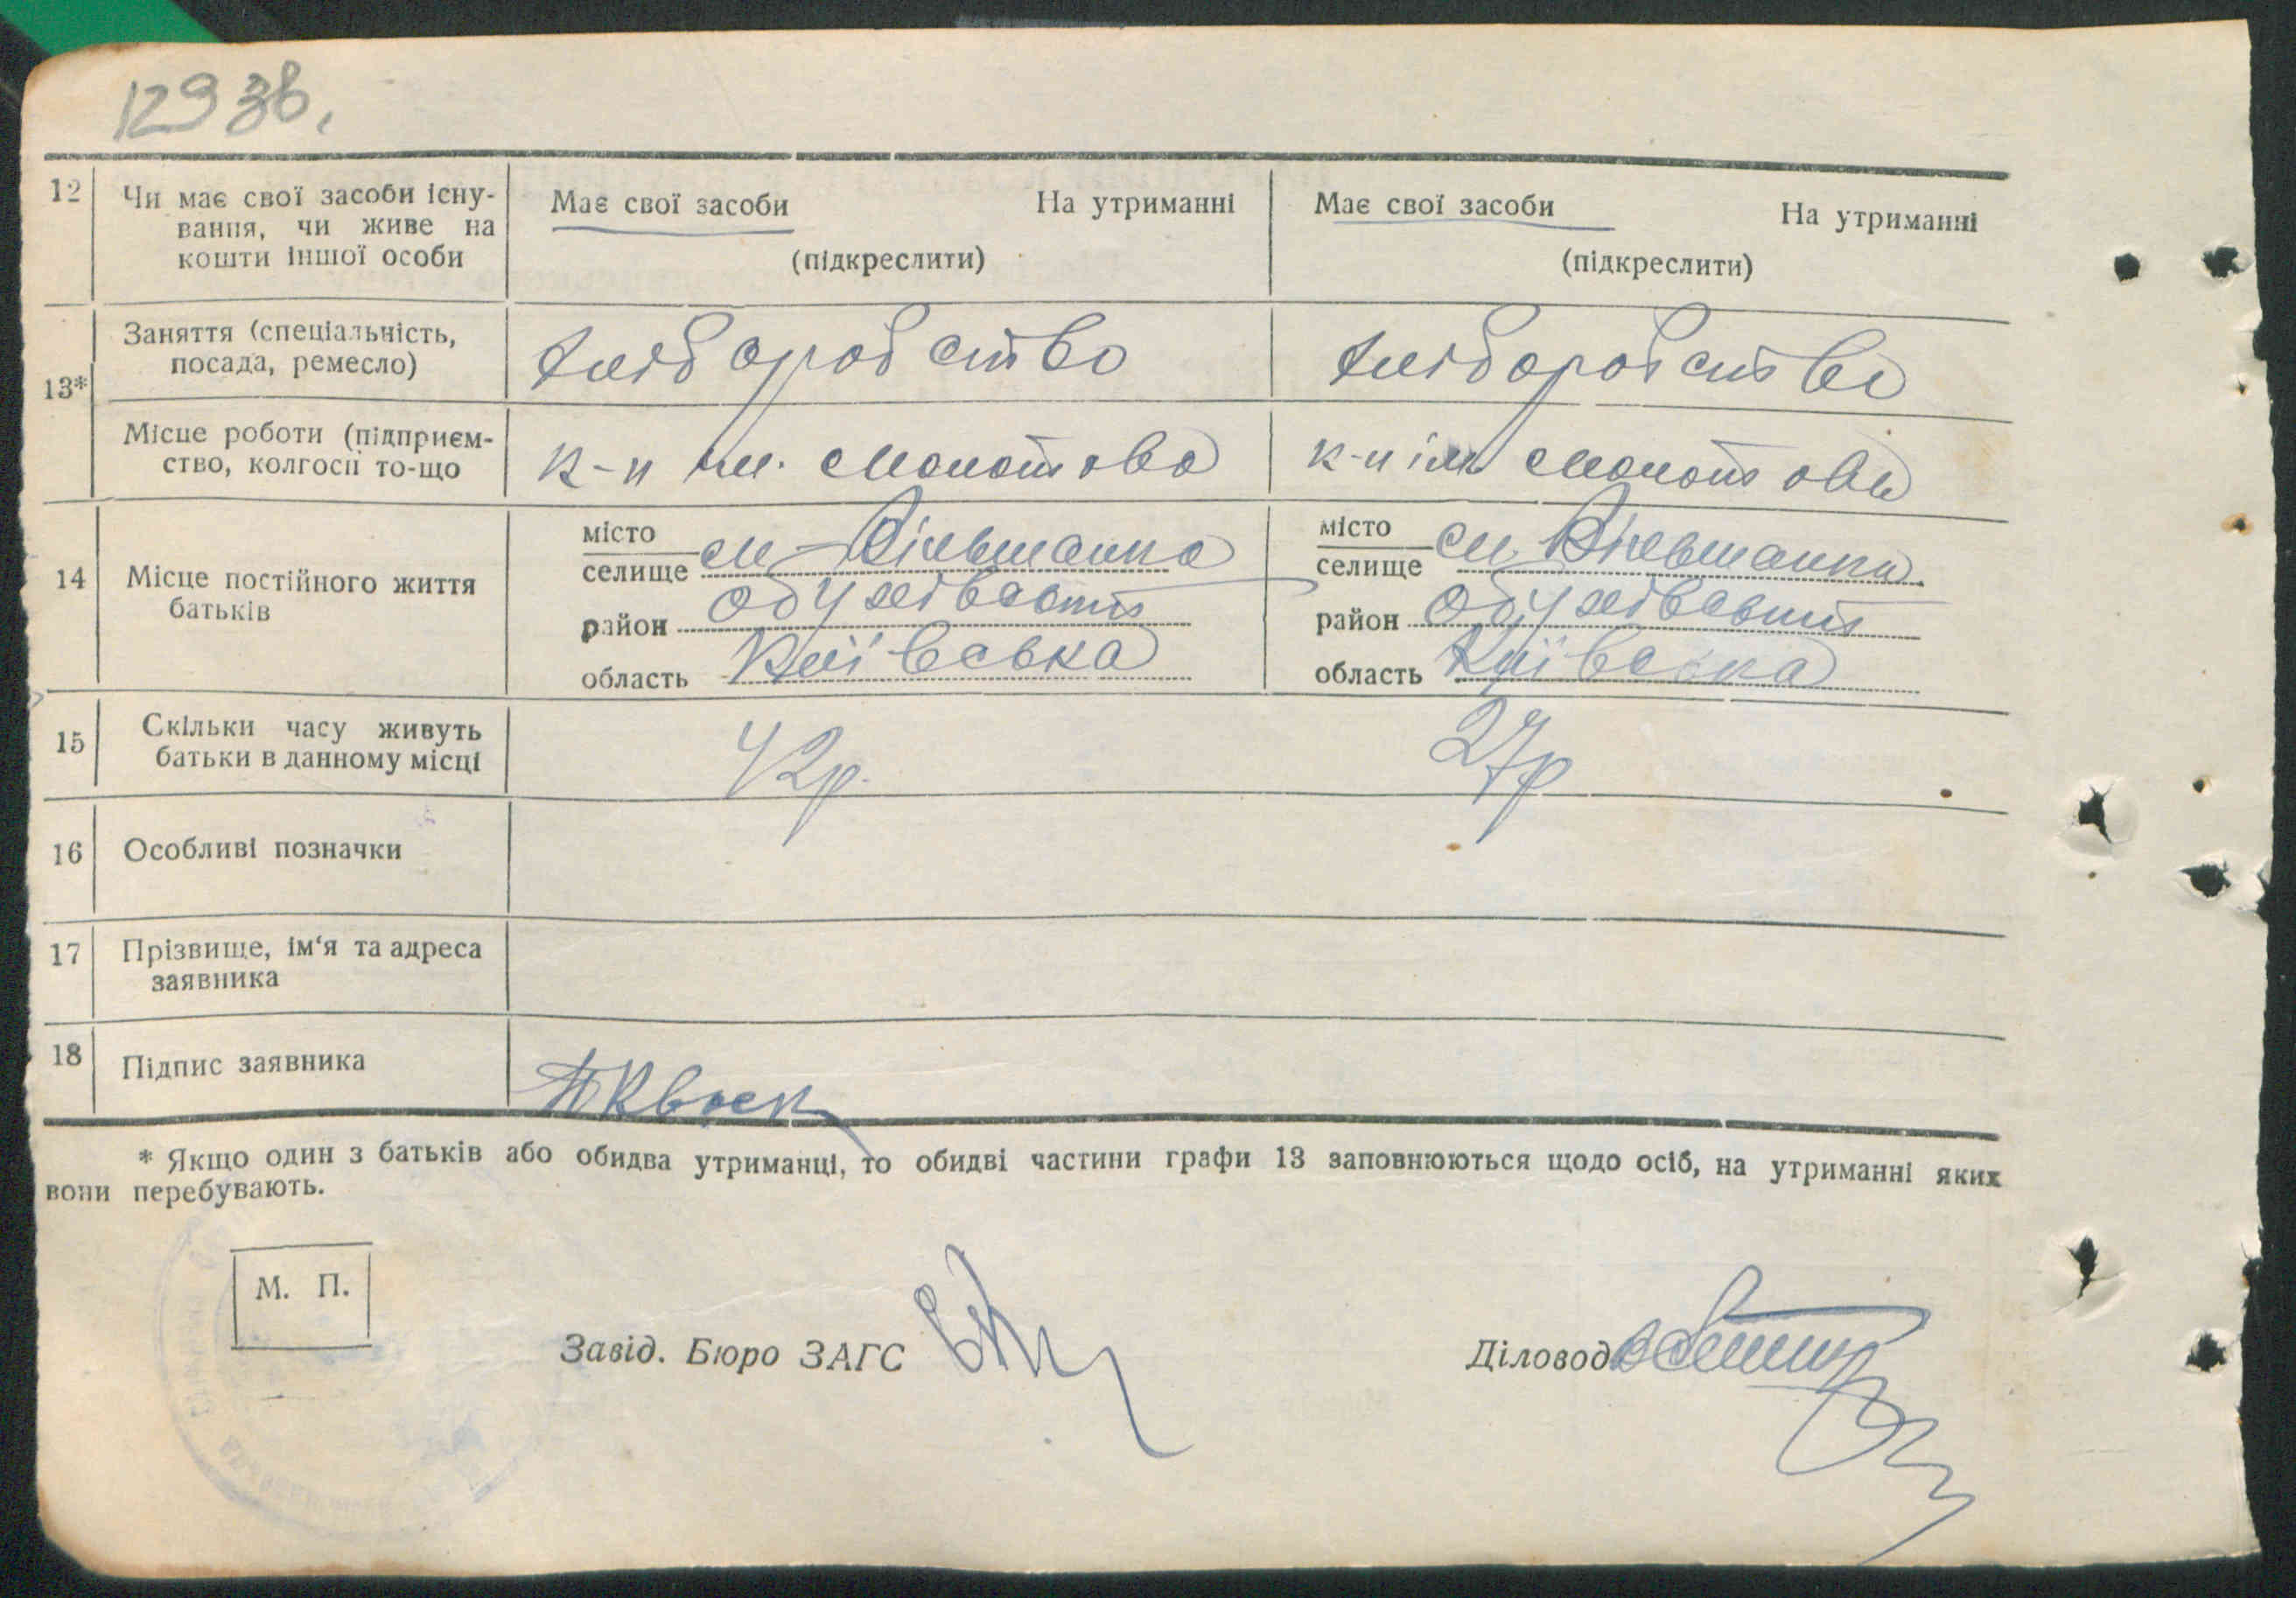 129 зв.
12 Чи має свої засоби існу-
вання, чи живе на
кошти іншої особи
Має свої засоби На утриманні
(підкреслити)
Має свої засоби На утриманні
(підкреслити)
13*
Заняття (спеціальність,
посада, ремесло)
хліборобство
хліборобство
Місце роботи (підприєм-
ство, колгосп то-що
к-п ім. Молотова
к-п ім Молотова
14 Місце постійного життя
батьків
місто
селище см Вільшанка
район Обухівський
область Київська
місто
селище см Вільшанка
район Обухівський
область Київська
15 Скільки часу живуть
батьки в данному місці
42р.
27р
16 Особливі позначки
17 Прізвище, ім‘я та адреса
заявника
18 Підпис заявника
* Якщо один з батьків або обидва утриманці, то обидві частини графи 13 заповнюються щодо осіб, на утриманні яких
вони перебувають.
М. П.
Завід. Бюро ЗАГС
Діловод